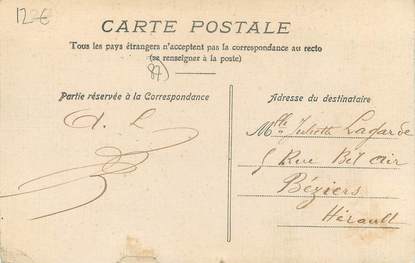 12€
CARTE POSTALE
Tous les pays étrangers n'acceptent pas la correspondance au recto
(se renseigner à la poste)
87)
Partie réservée à la Correspondance
A. L
Adresse du destinataire
Mlle Juliette Lagarde
5 Rue Bel air
Béziers
Hérault